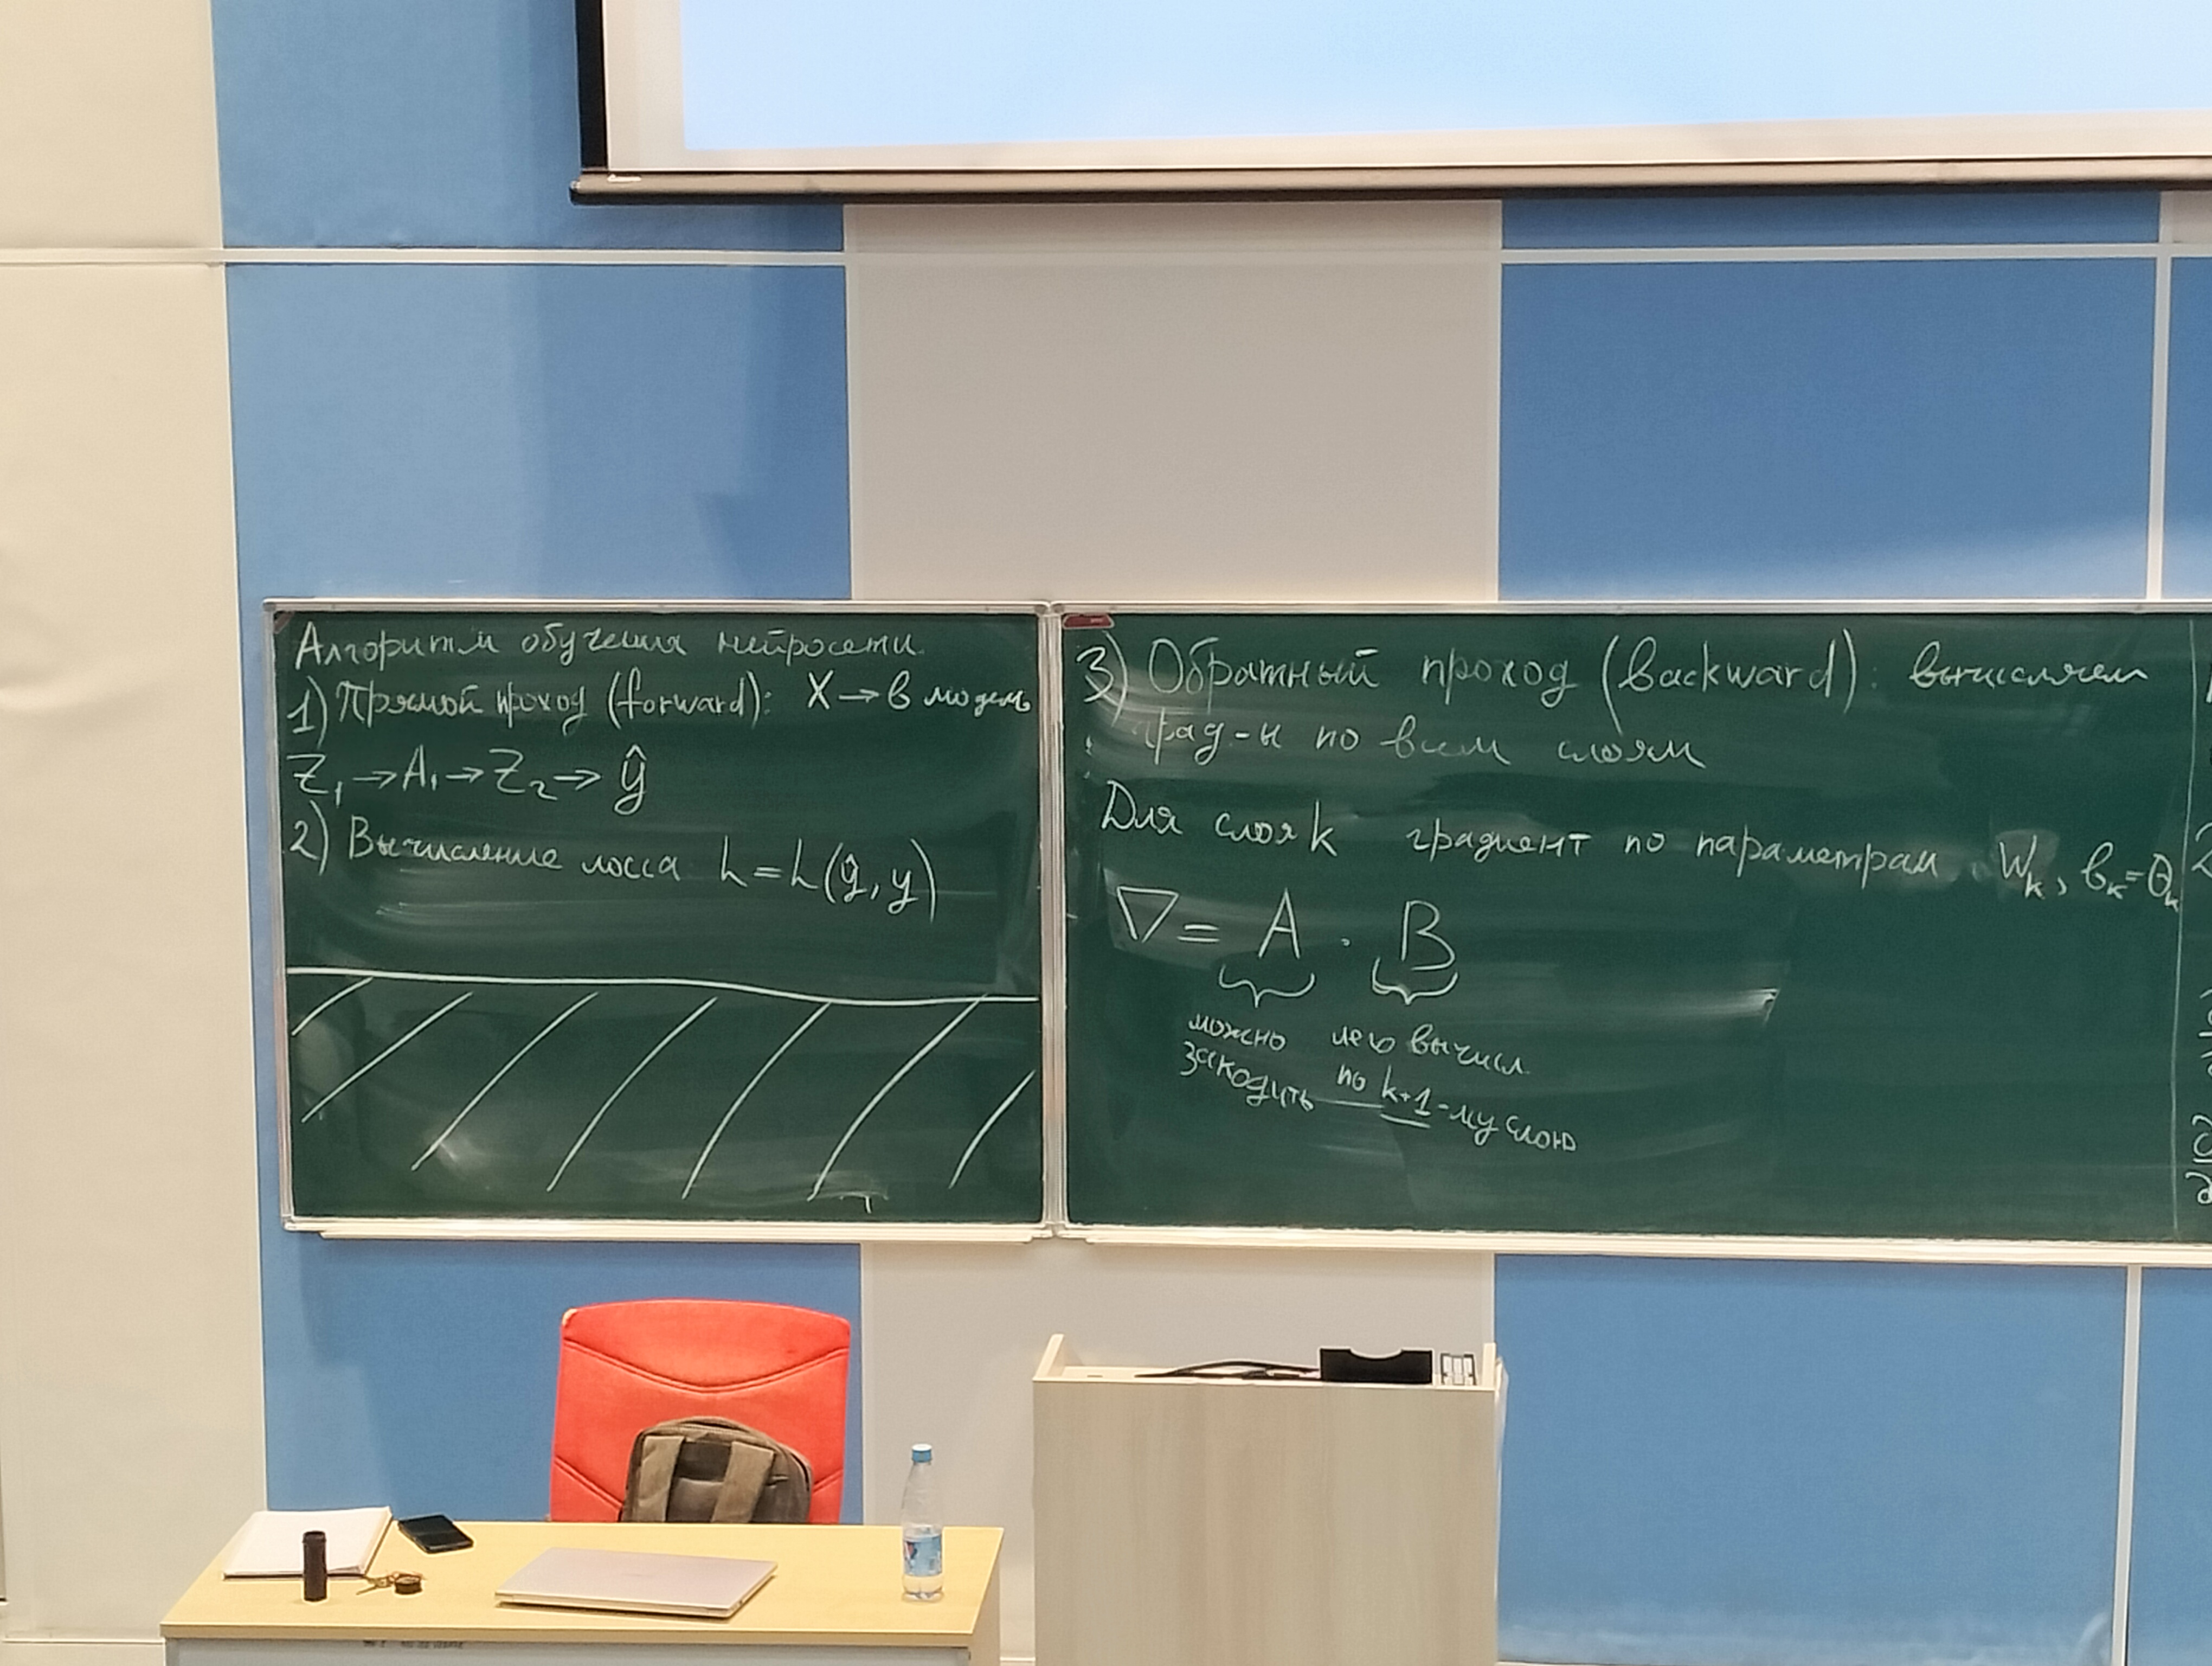 Алгоритм обучения нейросети
1) Прямой проход (forward): X → в модель
Z₁ → A₁ → Z₂ → ŷ
2) Вычисление лосса L = L(ŷ, y)
3) Обратный проход (backward): вычисляем
град-ы по всем слоям
Для слоя k градиент по параметрам Wₖ, bₖ = θₖ
∇ = A · B
можно
закодить
вычисл.
по k+1-му слою